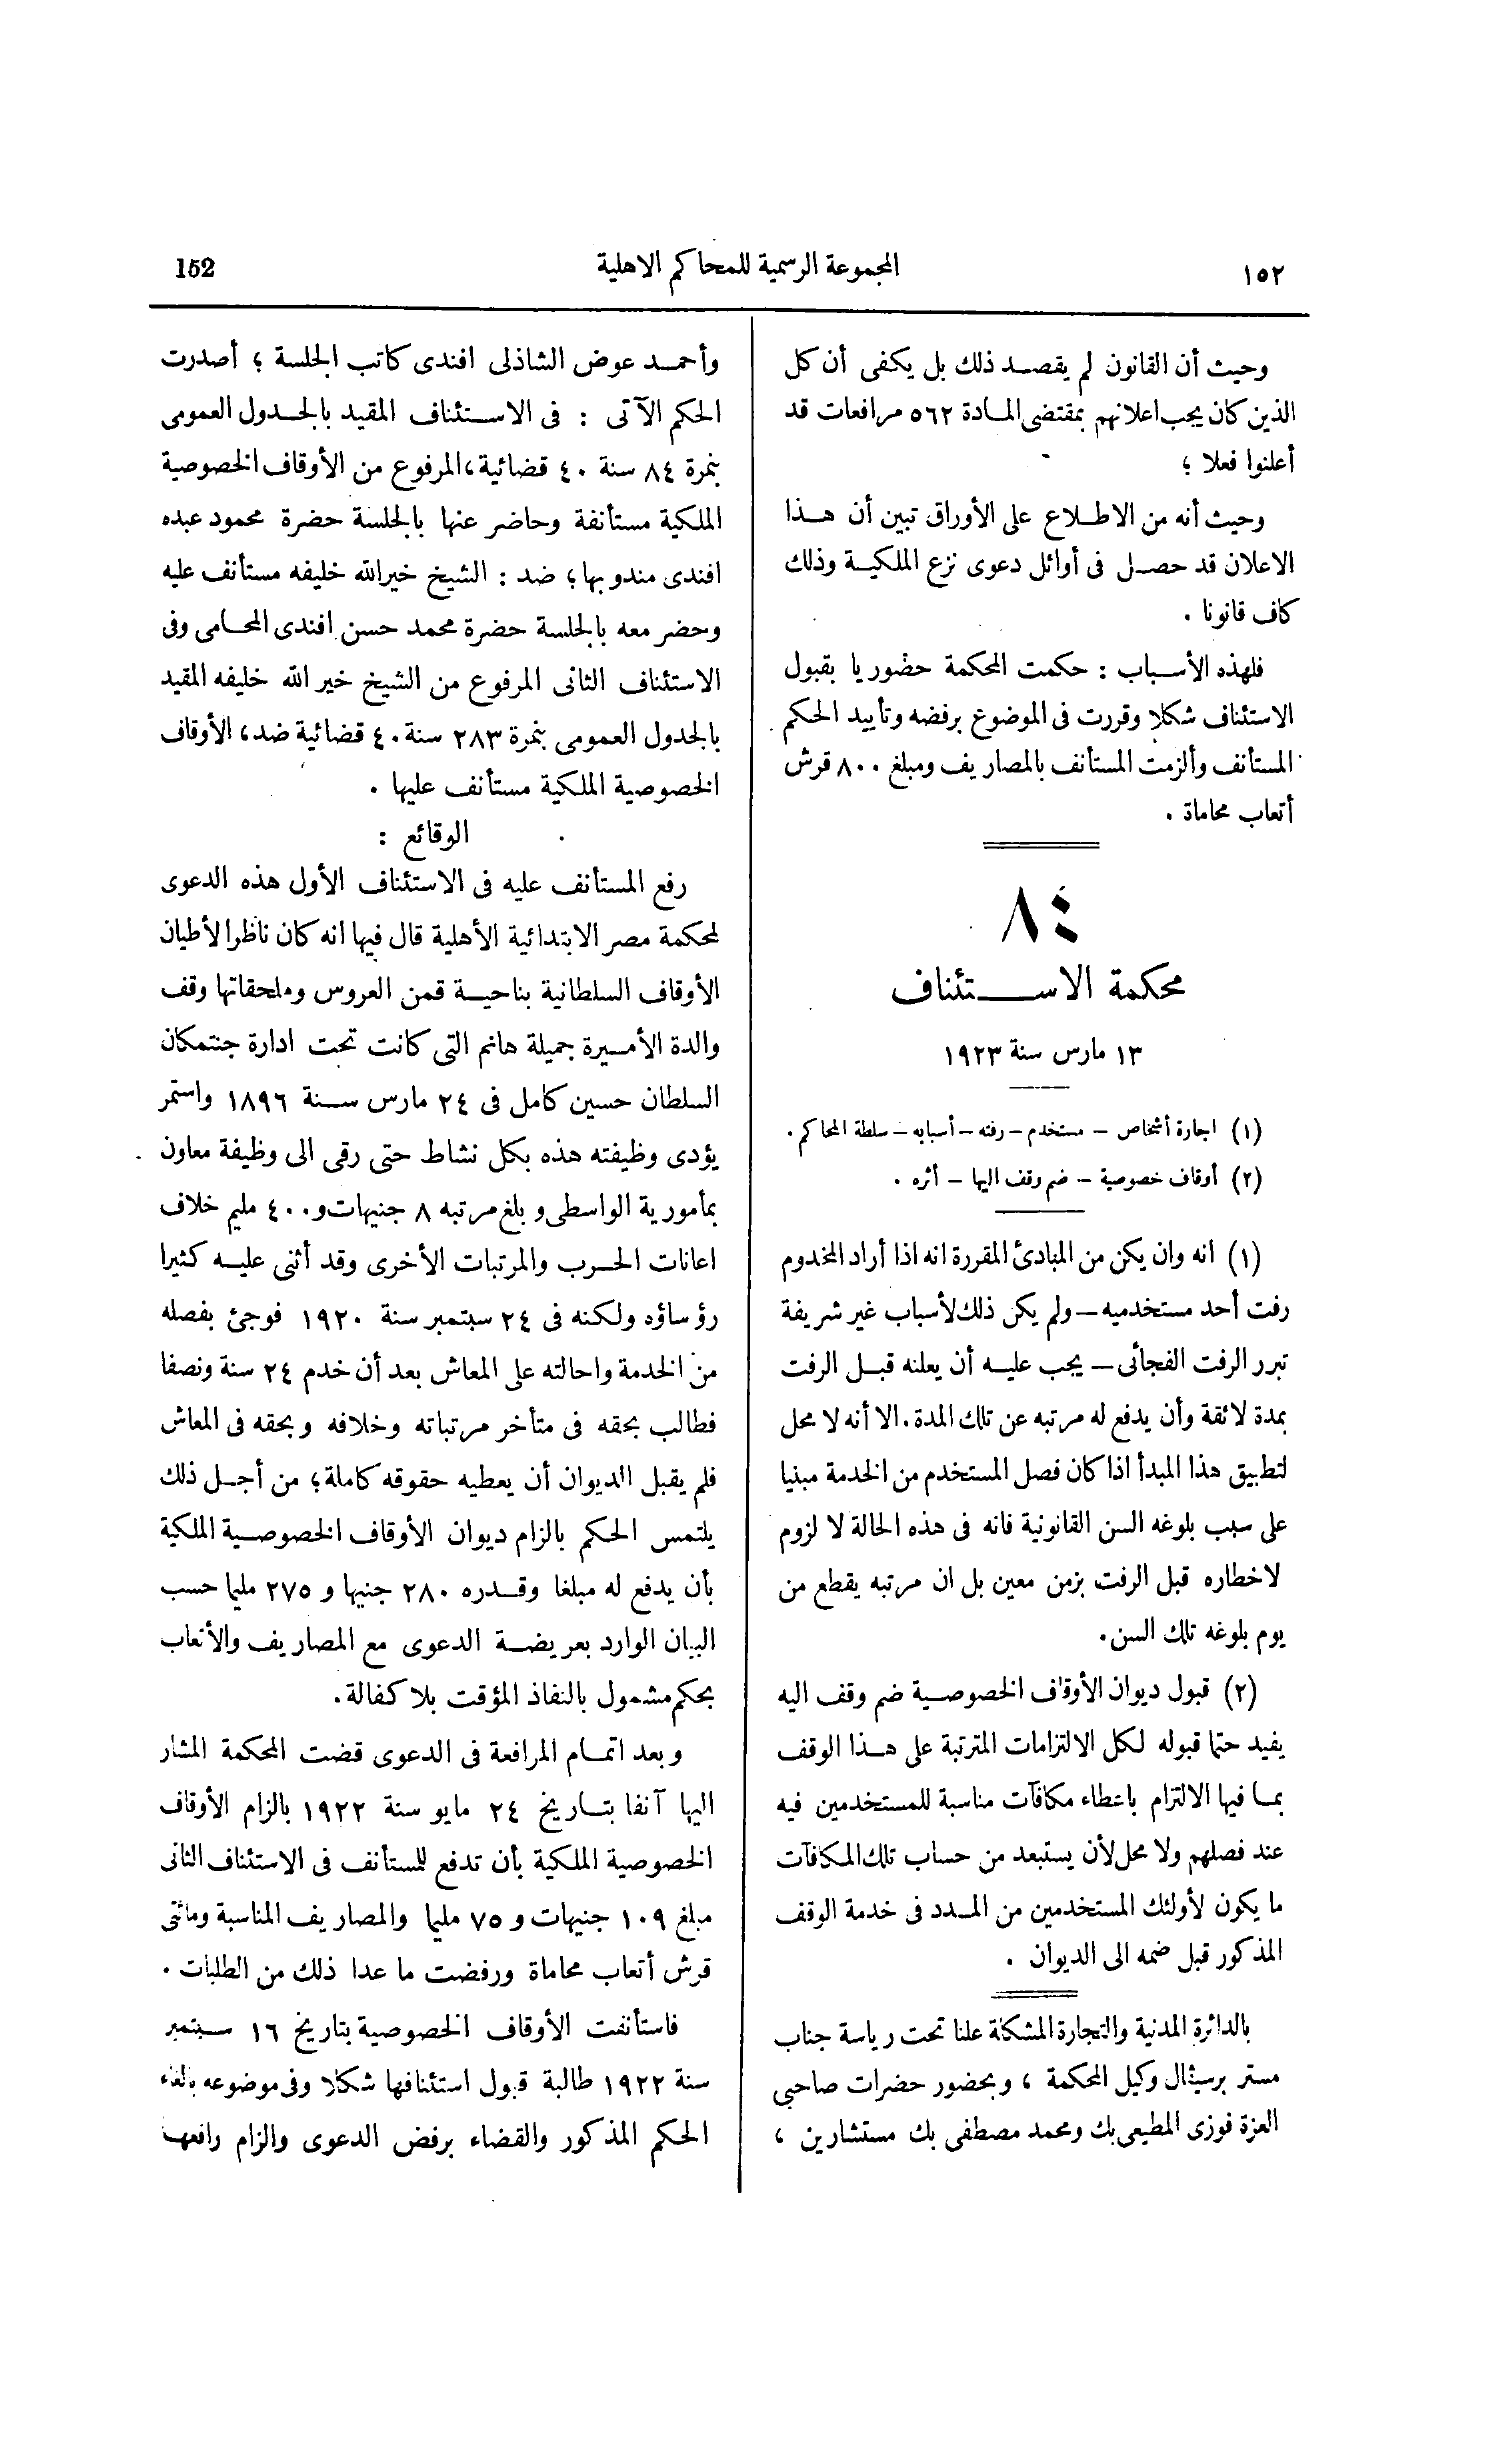 ١٥٢
المجموعة الرسمية للمحاكم الاهلية
152
وحيث أن القانون لم يقصد ذلك بل يكفى أن كل
الذين كان يجب اعلانهم بمقتضى المادة ٥٦٢ مرافعات قد
أعلنوا فعلا ؛
وحيث أنه من الاطلاع على الأوراق تبين أن هذا
الاعلان قد حصل فى أوائل دعوى نزع الملكية وذلك
كاف قانونا .
فلهذه الأسباب : حكمت المحكمة حضوريا بقبول
الاستئناف شكلا وقررت فى الموضوع برفضه وتأييد الحكم
المستأنف وألزمت المستأنف بالمصاريف ومبلغ ٨٠٠ قرش
أتعاب محاماة .
٨٤
محكمة الاستئناف
١٣ مارس سنة ١٩٢٣
(١) اجارة أشخاص – مستخدم – رفته – أسبابه – سلطة المحاكم .
(٢) أوقاف خصوصية – ضم وقف اليها – أثره .
(١) انه وان يكن من المبادئ المقررة انه اذا أراد المخدوم
رفت أحد مستخدميه – ولم يكن ذلك لأسباب غير شريفة
تبرر الرفت الفجائى – يجب عليه أن يعلنه قبل الرفت
بمدة لائقة وأن يدفع له مرتبه عن تلك المدة . الا أنه لا محل
لتطبيق هذا المبدأ اذا كان فصل المستخدم من الخدمة مبنيا
على سبب بلوغه السن القانونية فانه فى هذه الحالة لا لزوم
لاخطاره قبل الرفت بزمن معين بل ان مرتبه يقطع من
يوم بلوغه تلك السن .
(٢) قبول ديوان الأوقاف الخصوصية ضم وقف اليه
يفيد حتما قبوله لكل الالتزامات المترتبة على هذا الوقف
بما فيها الالتزام باعطاء مكافآت مناسبة للمستخدمين فيه
عند فصلهم ولا محل لأن يستبعد من حساب تلك المكافآت
ما يكون لأولئك المستخدمين من المدد فى خدمة الوقف
المذكور قبل ضمه الى الديوان .
بالدائرة المدنية والتجارة المشكلة علنا تحت رياسة جناب
مستر برسيڤال وكيل المحكمة ، وبحضور حضرات صاحبى
العزة فوزى المطيعى بك ومحمد مصطفى بك مستشارين ،
وأحمد عوض الشاذلى افندى كاتب الجلسة ؛ أصدرت
الحكم الآتى : فى الاستئناف المقيد بالجدول العمومى
بنمرة ٨٤ سنة ٤٠ قضائية ، المرفوع من الأوقاف الخصوصية
الملكية مستأنفة وحاضر عنها بالجلسة حضرة محمود عبده
افندى مندوبها ؛ ضد : الشيخ خير الله خليفه مستأنف عليه
وحضر معه بالجلسة حضرة محمد حسن افندى المحامى وفى
الاستئناف الثانى المرفوع من الشيخ خير الله خليفه المقيد
بالجدول العمومى بنمرة ٢٨٣ سنة ٤٠ قضائية ضد ، الأوقاف
الخصوصية الملكية مستأنف عليها .
الوقائع :
رفع المستأنف عليه فى الاستئناف الأول هذه الدعوى
لمحكمة مصر الابتدائية الأهلية قال فيها انه كان ناظرا لأطيان
الأوقاف السلطانية بناحية قمن العروس وملحقاتها وقف
والدة الأميرة جميلة هانم التى كانت تحت ادارة جنتمكان
السلطان حسين كامل فى ٢٤ مارس سنة ١٨٩٦ واستمر
يؤدى وظيفته هذه بكل نشاط حتى رقى الى وظيفة معاون
بمأمورية الواسطى وبلغ مرتبه ٨ جنيهات و ٤٠٠ مليم خلاف
اعانات الحرب والمرتبات الأخرى وقد أثنى عليه كثيرا
رؤساؤه ولكنه فى ٢٤ سبتمبر سنة ١٩٢٠ فوجئ بفصله
من الخدمة واحالته على المعاش بعد أن خدم ٢٤ سنة ونصفا
فطالب بحقه فى متأخر مرتباته وخلافه وبحقه فى المعاش
فلم يقبل الديوان أن يعطيه حقوقه كاملة ؛ من أجل ذلك
يلتمس الحكم بالزام ديوان الأوقاف الخصوصية الملكية
بأن يدفع له مبلغا وقدره ٢٨٠ جنيها و ٢٧٥ مليما حسب
البيان الوارد بعريضة الدعوى مع المصاريف والأتعاب
بحكم مشمول بالنفاذ المؤقت بلا كفالة .
وبعد اتمام المرافعة فى الدعوى قضت المحكمة المشار
اليها آنفا بتاريخ ٢٤ مايو سنة ١٩٢٢ بالزام الأوقاف
الخصوصية الملكية بأن تدفع للستأنف فى الاستئناف الثانى
مبلغ ١٠٩ جنيهات و ٧٥ مليما والمصاريف المناسبة ومائتى
قرش أتعاب محاماة ورفضت ما عدا ذلك من الطلبات .
فاستأنفت الأوقاف الخصوصية بتاريخ ١٦ سبتمبر
سنة ١٩٢٢ طالبة قبول استئنافها شكلا وفى موضوعه بالغاء
الحكم المذكور والقضاء برفض الدعوى والزام رافعها